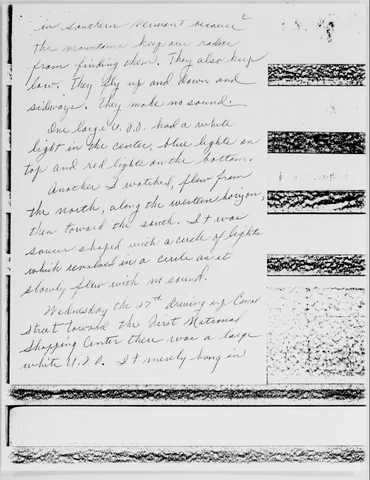 2
in southern Vermont because
the mountains keep our radar
from finding them. They also keep
low. They fly up and down and
sideways. They make no sound.
One large U.F.O. had a white
light in the center, blue lights on
top and red lights on the bottom.
Another I watched, flew from
the north, along the western horizon,
then toward the south. It was
saucer shaped with a circle of lights
which revolved in a circle as it
slowly flew with no sound.
Wednesday the 27th driving up
Street toward the First National
Shopping Center there was a large
white U.F.O. It merely hung in